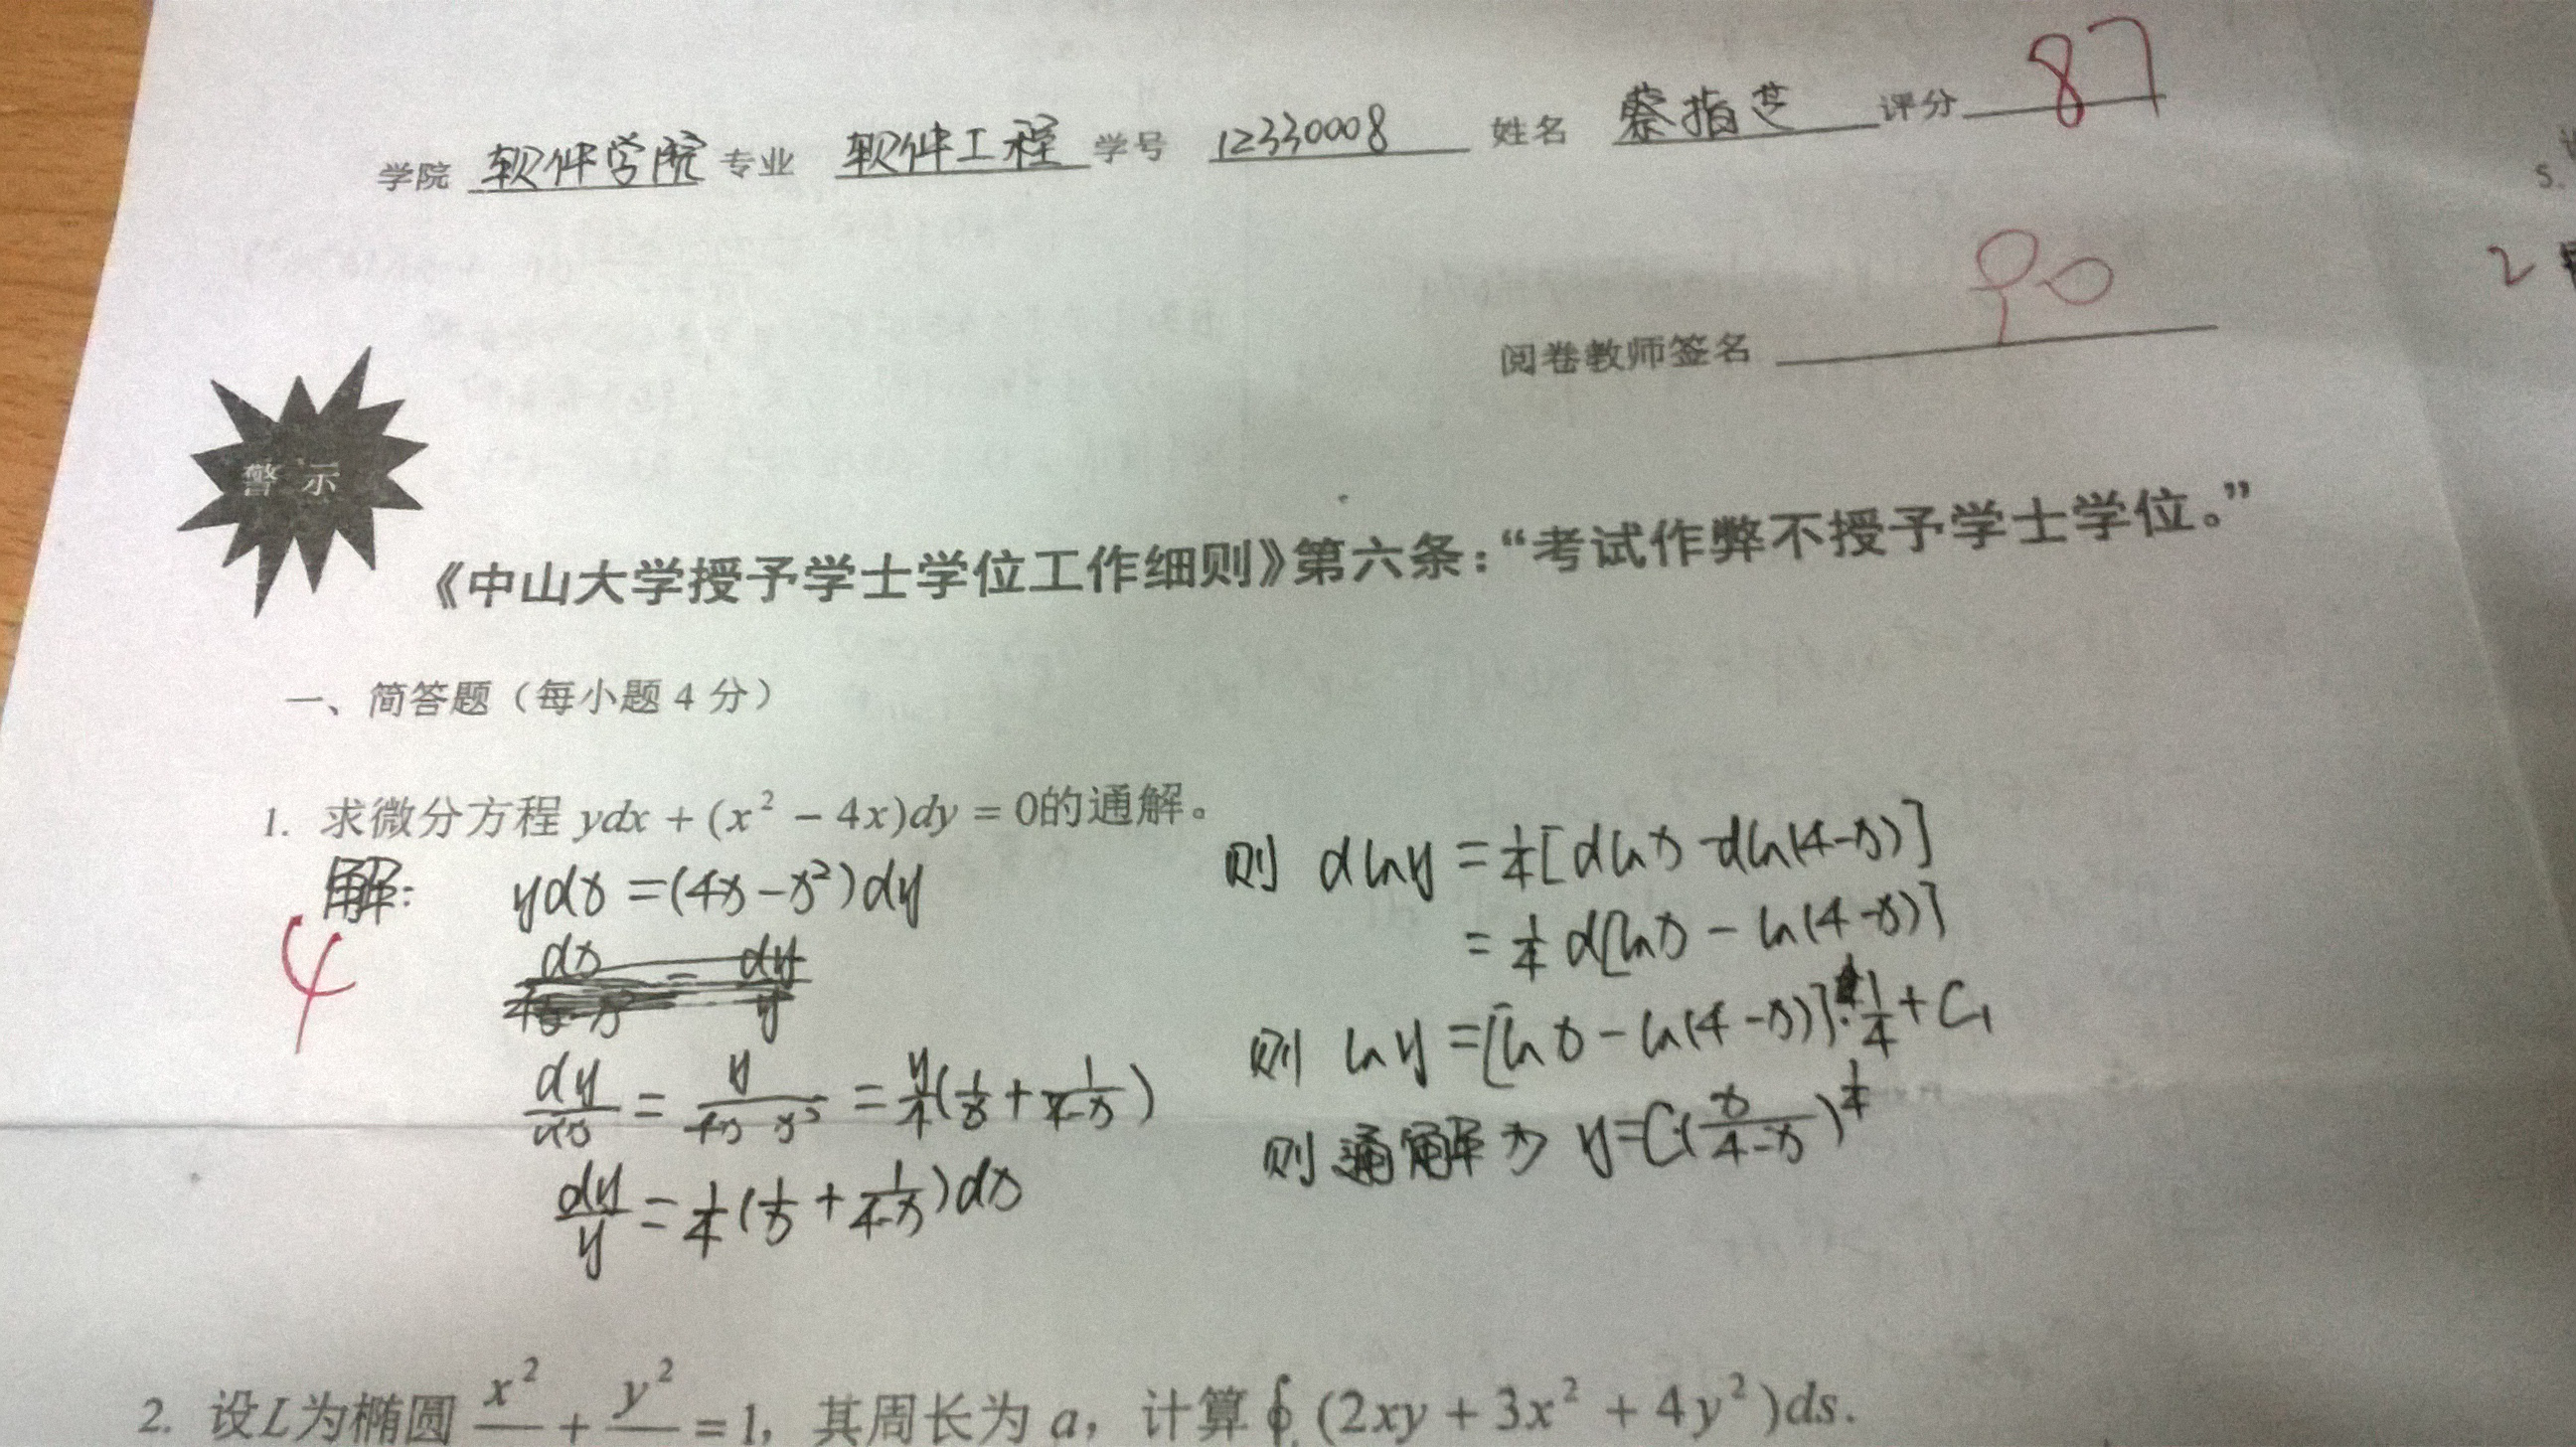 学院 软件学院 专业 软件工程 学号 12330008 姓名 蔡指芝 评分 87
90
阅卷教师签名
警示
《中山大学授予学士学位工作细则》第六条：“考试作弊不授予学士学位。”
一、简答题（每小题 4 分）
1. 求微分方程 ydx + (x² − 4x)dy = 0的通解。
解: ydx = (4x − x²)dy
4
dy/dx = y/(4x − x²) = y/4(1/x + 1/(4−x))
dy/y = 1/4(1/x + 1/(4−x))dx
则 dlny = 1/4[dlnx − dln(4−x)]
= 1/4 d[lnx − ln(4−x)]
则 lny = [lnx − ln(4−x)]·1/4 + C₁
则通解为 y = C(x/(4−x))^(1/4)
2. 设L为椭圆 x² + y² = 1, 其周长为 a, 计算 ∮ (2xy + 3x² + 4y²)ds.
5.
2